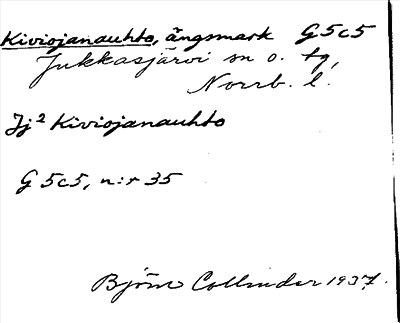 Kiviojanauhto, ängsmark G5c5
Jukkasjärvi sn o. tg,
Norrb. l.
Jj² Kiviojanauhto
G5c5, n:r 35
Björn Collinder 1937.